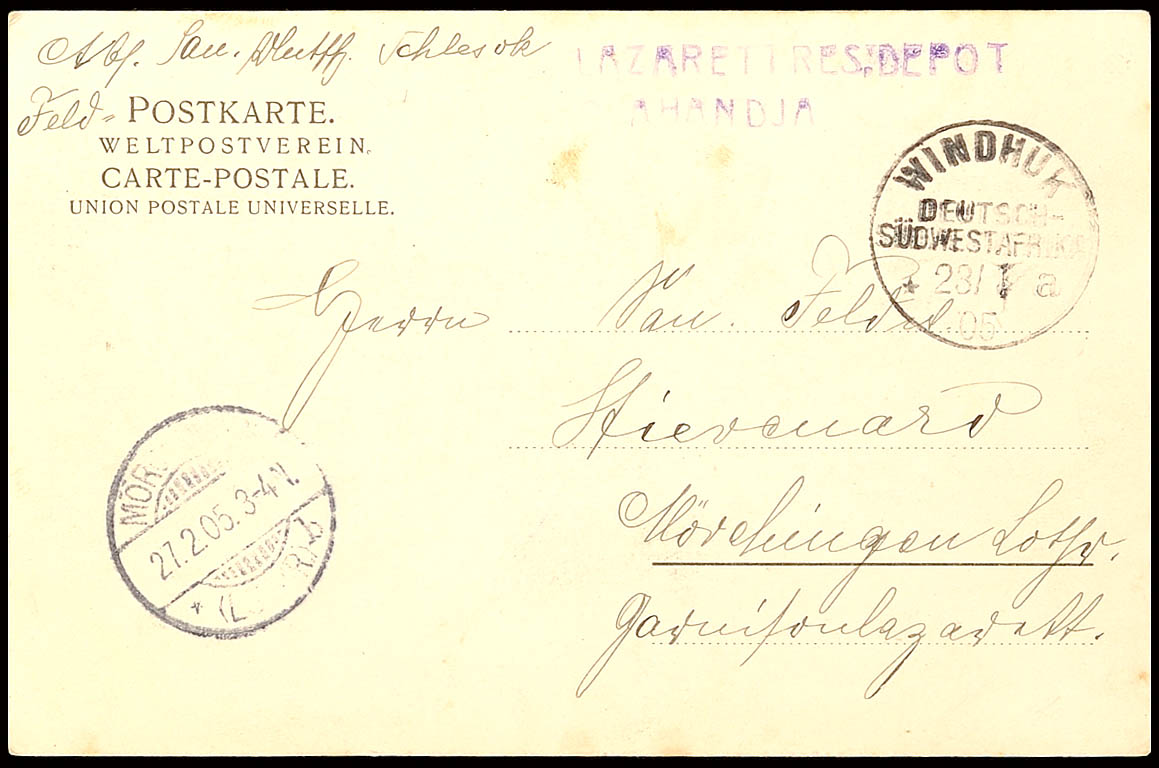 Abs. San. Schlesok
Feld=
POSTKARTE.
WELTPOSTVEREIN.
CARTE-POSTALE.
UNION POSTALE UNIVERSELLE.
LAZARETTRES.DEPOT
AHANDJA
WINDHUK
DEUTSCH-
SÜDWESTAFRIKA
* 23/ a
05
Herrn San. Feldw.
Mörchingen Lothr.
Garnisonlazarett.
MÖR
27.2.05.3-4N.
* (L